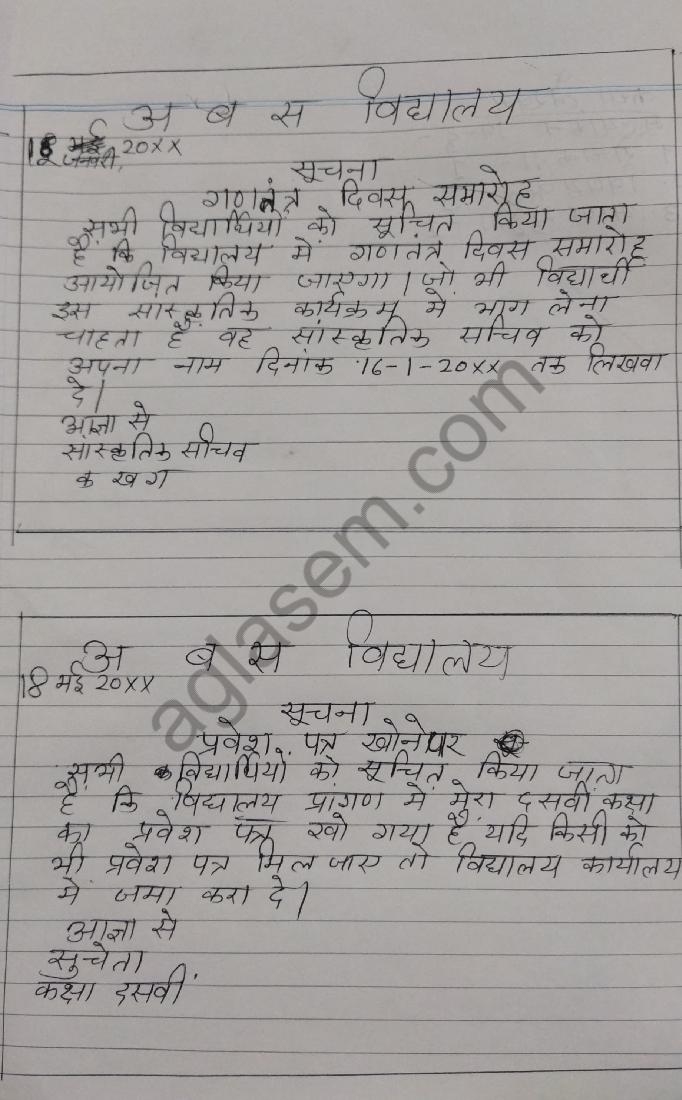 अ ब स विद्यालय
18 जनवरी, 20XX
सूचना
गणतंत्र दिवस समारोह
सभी विद्यार्थियों को सूचित किया जाता
है कि विद्यालय में गणतंत्र दिवस समारोह
आयोजित किया जाएगा। जो भी विद्यार्थी
इस सांस्कृतिक कार्यक्रम में भाग लेना
चाहता है वह सांस्कृतिक सचिव को
अपना नाम दिनांक 16-1-20XX तक लिखवा
दे।
आज्ञा से
सांस्कृतिक सचिव
क ख ग
अ ब स विद्यालय
18 मई 20XX
सूचना
प्रवेश पत्र खोने पर
सभी विद्यार्थियों को सूचित किया जाता
है कि विद्यालय प्रांगण में मेरा दसवीं कक्षा
का प्रवेश पत्र खो गया है यदि किसी को
भी प्रवेश पत्र मिल जाए तो विद्यालय कार्यालय
में जमा करा दे।
आज्ञा से
सुचेता
कक्षा दसवीं
aglasem.com